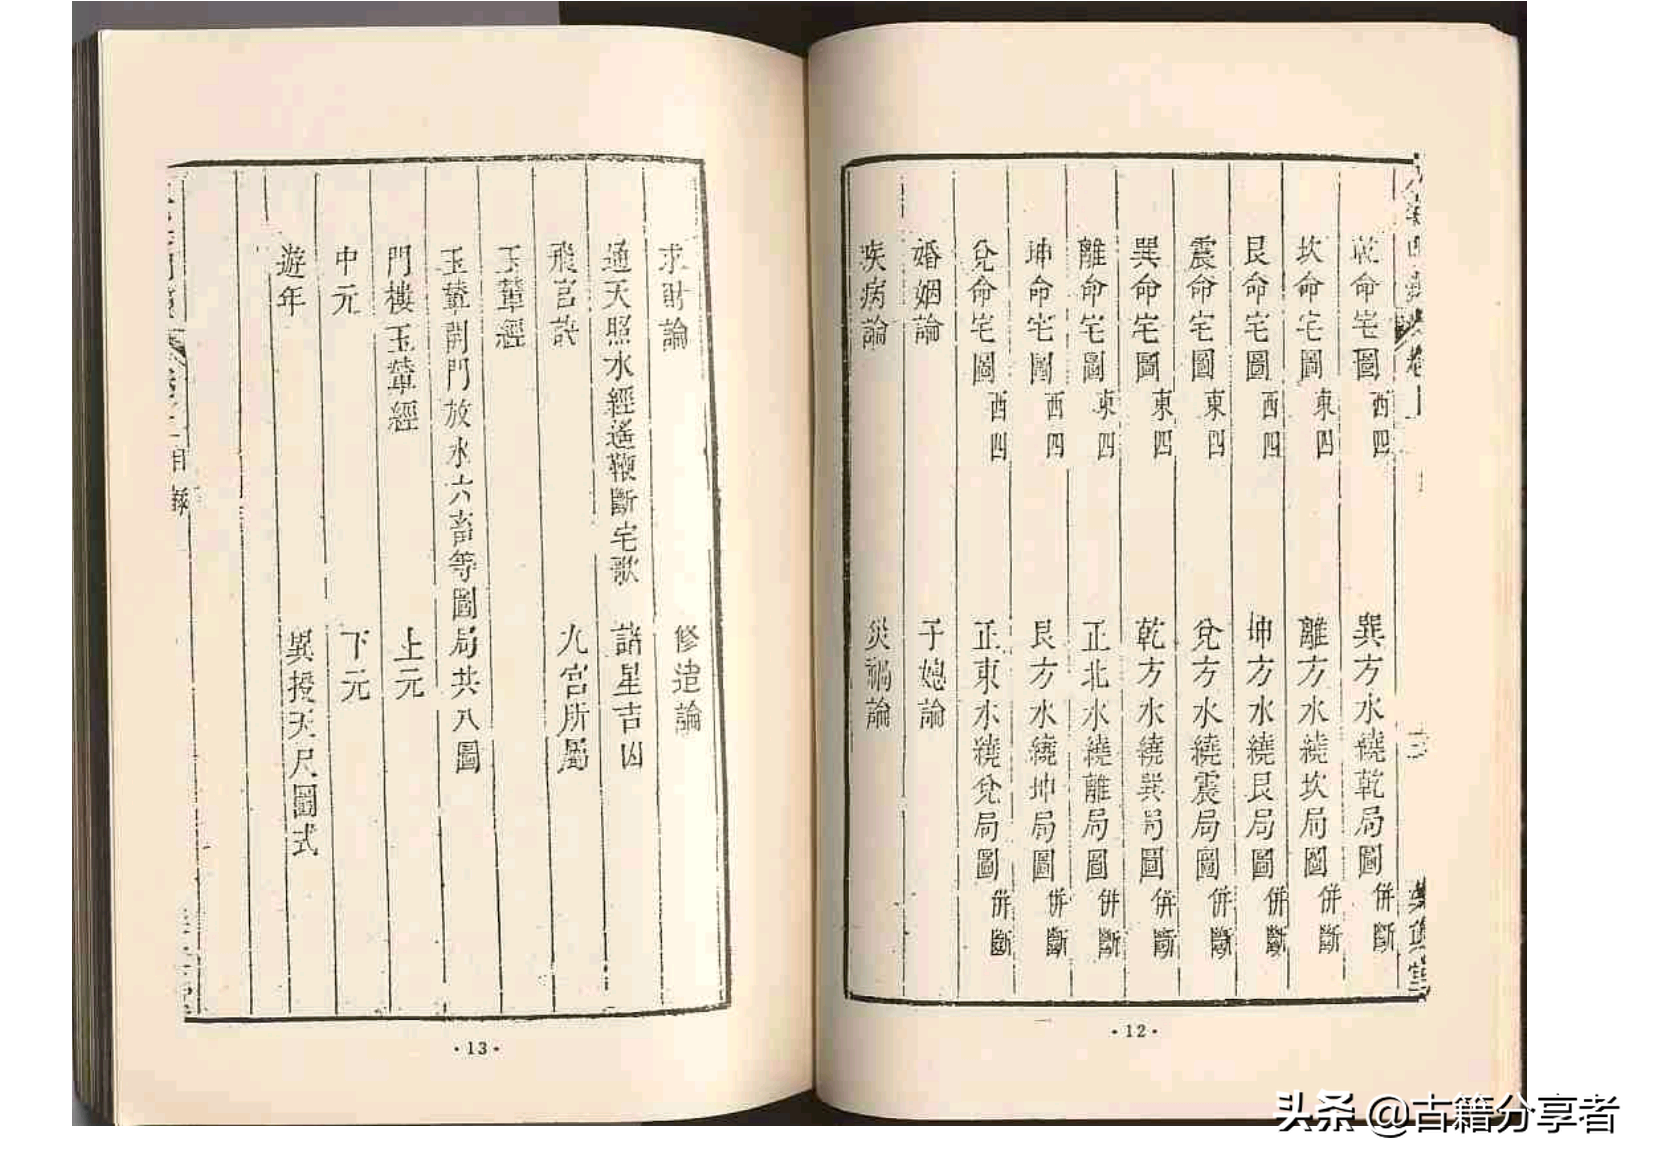 乾命宅圖 西四 巽方水繞乾局圖 併斷
坎命宅圖 東四 離方水繞坎局圖 併斷
艮命宅圖 西四 坤方水繞艮局圖 併斷
震命宅圖 東四 兌方水繞震局圖 併斷
巽命宅圖 東四 乾方水繞巽局圖 併斷
離命宅圖 東四 正北水繞離局圖 併斷
坤命宅圖 西四 艮方水繞坤局圖 併斷
兌命宅圖 西四 正東水繞兌局圖 併斷
婚姻論 子媳論
疾病論 災禍論
·12·
求財論 修造論
通天照水經遙鞭斷宅歌 諸星吉凶
飛宮訣 九宮所屬
玉輦經
玉輦開門放水六畜等圖局共八圖
門樓玉輦經 上元
中元 下元
遊年 異授天尺圖式
目錄
·13·
头条 @古籍分享者